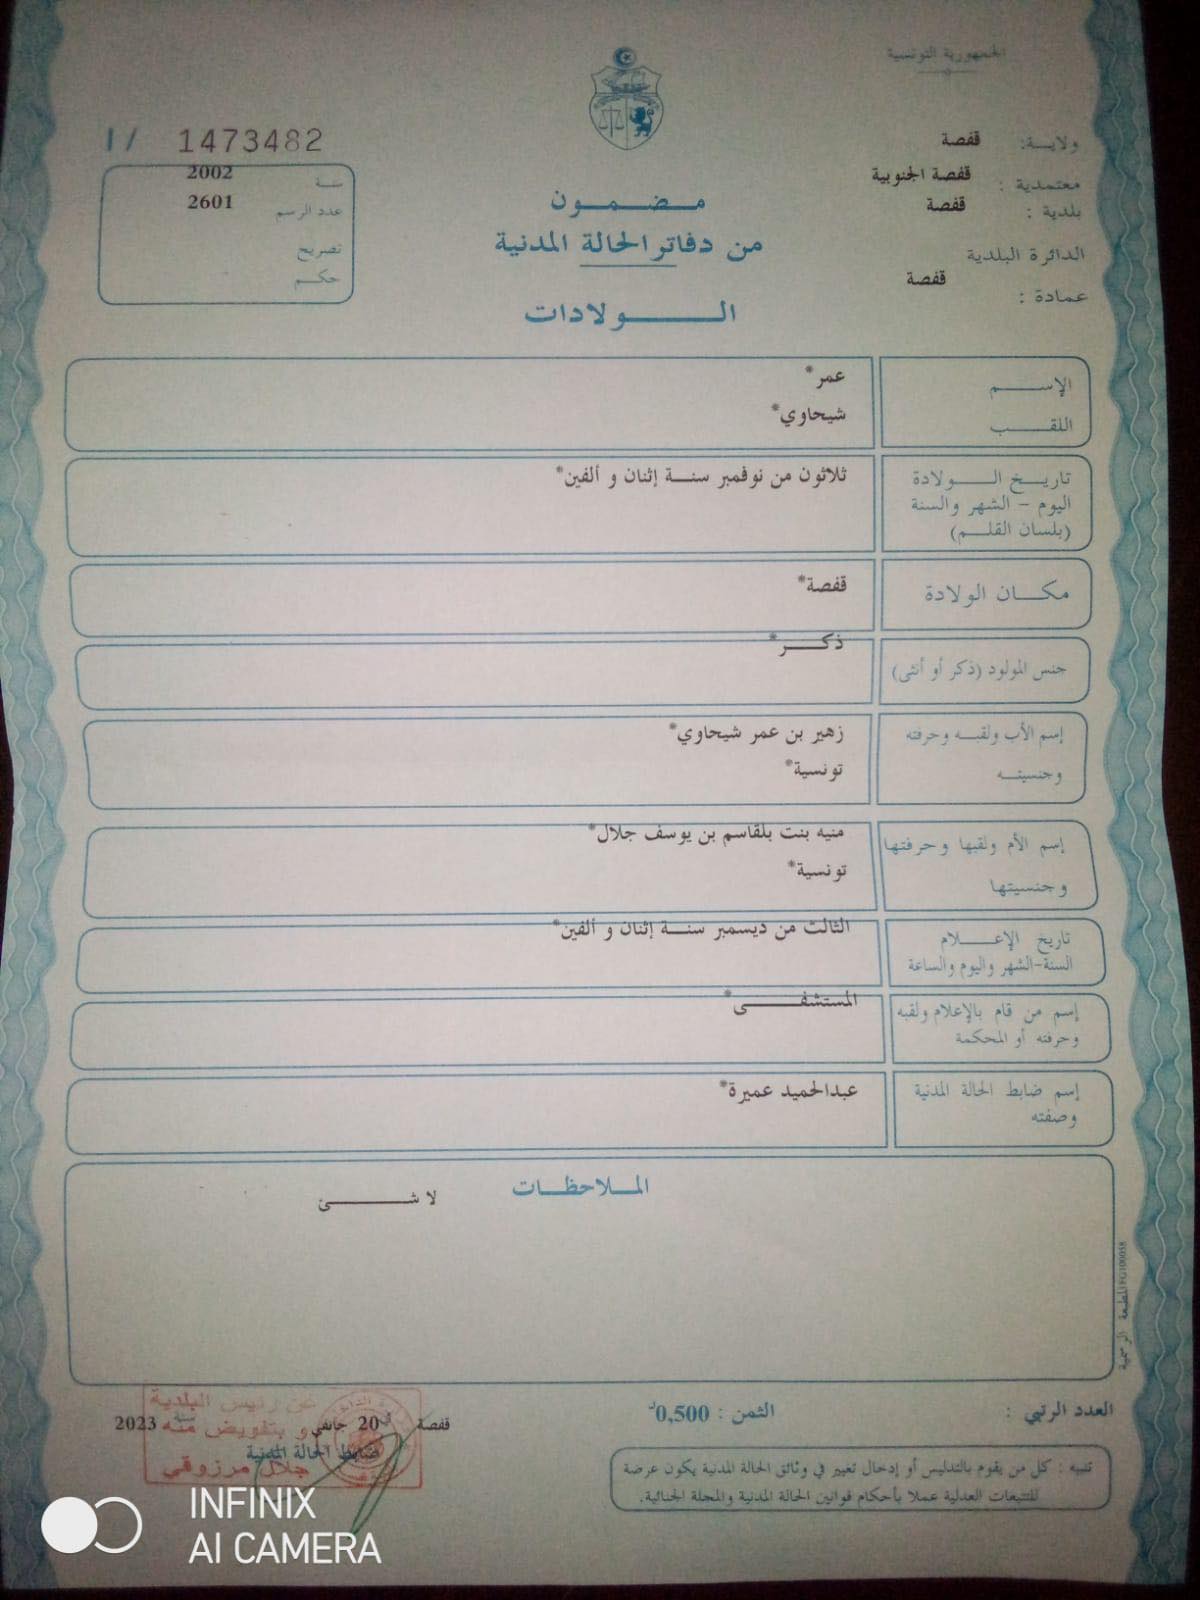 الجمهورية التونسية
ولايـــة: قفصة
معتمدية : قفصة الجنوبية
بلدية : قفصة
الدائرة البلدية
عمادة : قفصة
1473482 / I
سنة 2002
عدد الرسم 2601
تصريح
حكـــم
مـــضـــمـــون
من دفاتر الحالة المدنية
الـــــولادات
الإســـــم عمر*
اللقـــب شيحاوي*
تاريـــخ الـــــولادة ثلاثون من نوفمبر سنـــة إثنان و ألفين*
اليوم - الشهر والسنة
(بلسان القلـــم)
مكـــان الولادة قفصة*
جنس المولود (ذكر أو أنثى) ذكـــر*
إسم الأب ولقبـــه وحرفته زهير بن عمر شيحاوي*
وجنسيتـــه تونسية*
إسم الأم ولقبها وحرفتها منيه بنت بلقاسم بن يوسف جلال*
وجنسيتها تونسية*
تاريخ الإعـــلام الثالث من ديسمبر سنـــة إثنان و ألفين*
السنة-الشهر واليوم والساعة
إسم من قام بالإعلام ولقبه المستشفـــى*
وحرفته أو المحكمة
إسم ضابط الحالة المدنية عبدالحميد عميرة*
وصفته
المـــلاحظـــات
لا شـــــئ
المطبعة الرسمية
العدد الرتبي :
الثمن : 0,500د
قفصة في 20 جانفي سنة 2023
ضابط الحالة المدنية
عن رئيس البلدية
و بتفويض منه
جلال مرزوقي
تنبيه : كل من يقوم بالتدليس أو إدخال تغيير في وثائق الحالة المدنية يكون عرضة
للتتبعات العدلية عملا بأحكام قوانين الحالة المدنية والمجلة الجنائية.
INFINIX
AI CAMERA